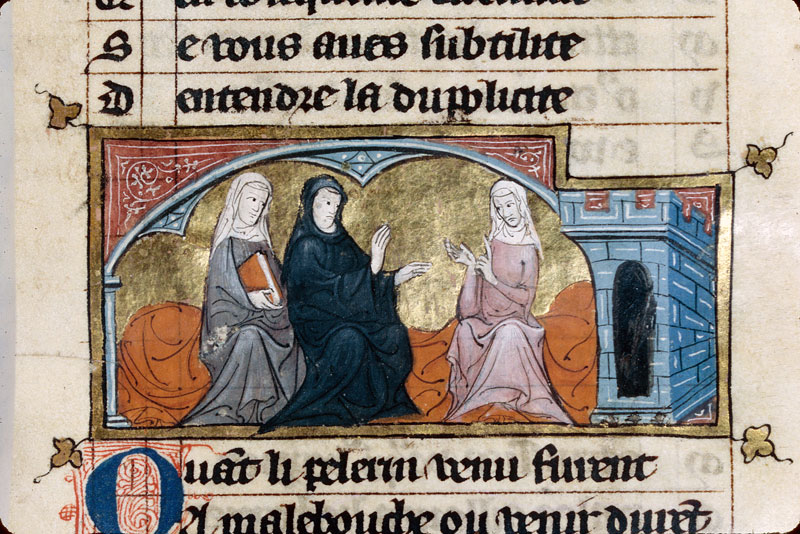 S e vous aues subtilite
D entendre la dupplicite
Quāt li pelerin venu furent
A malebouche ou venir durēt